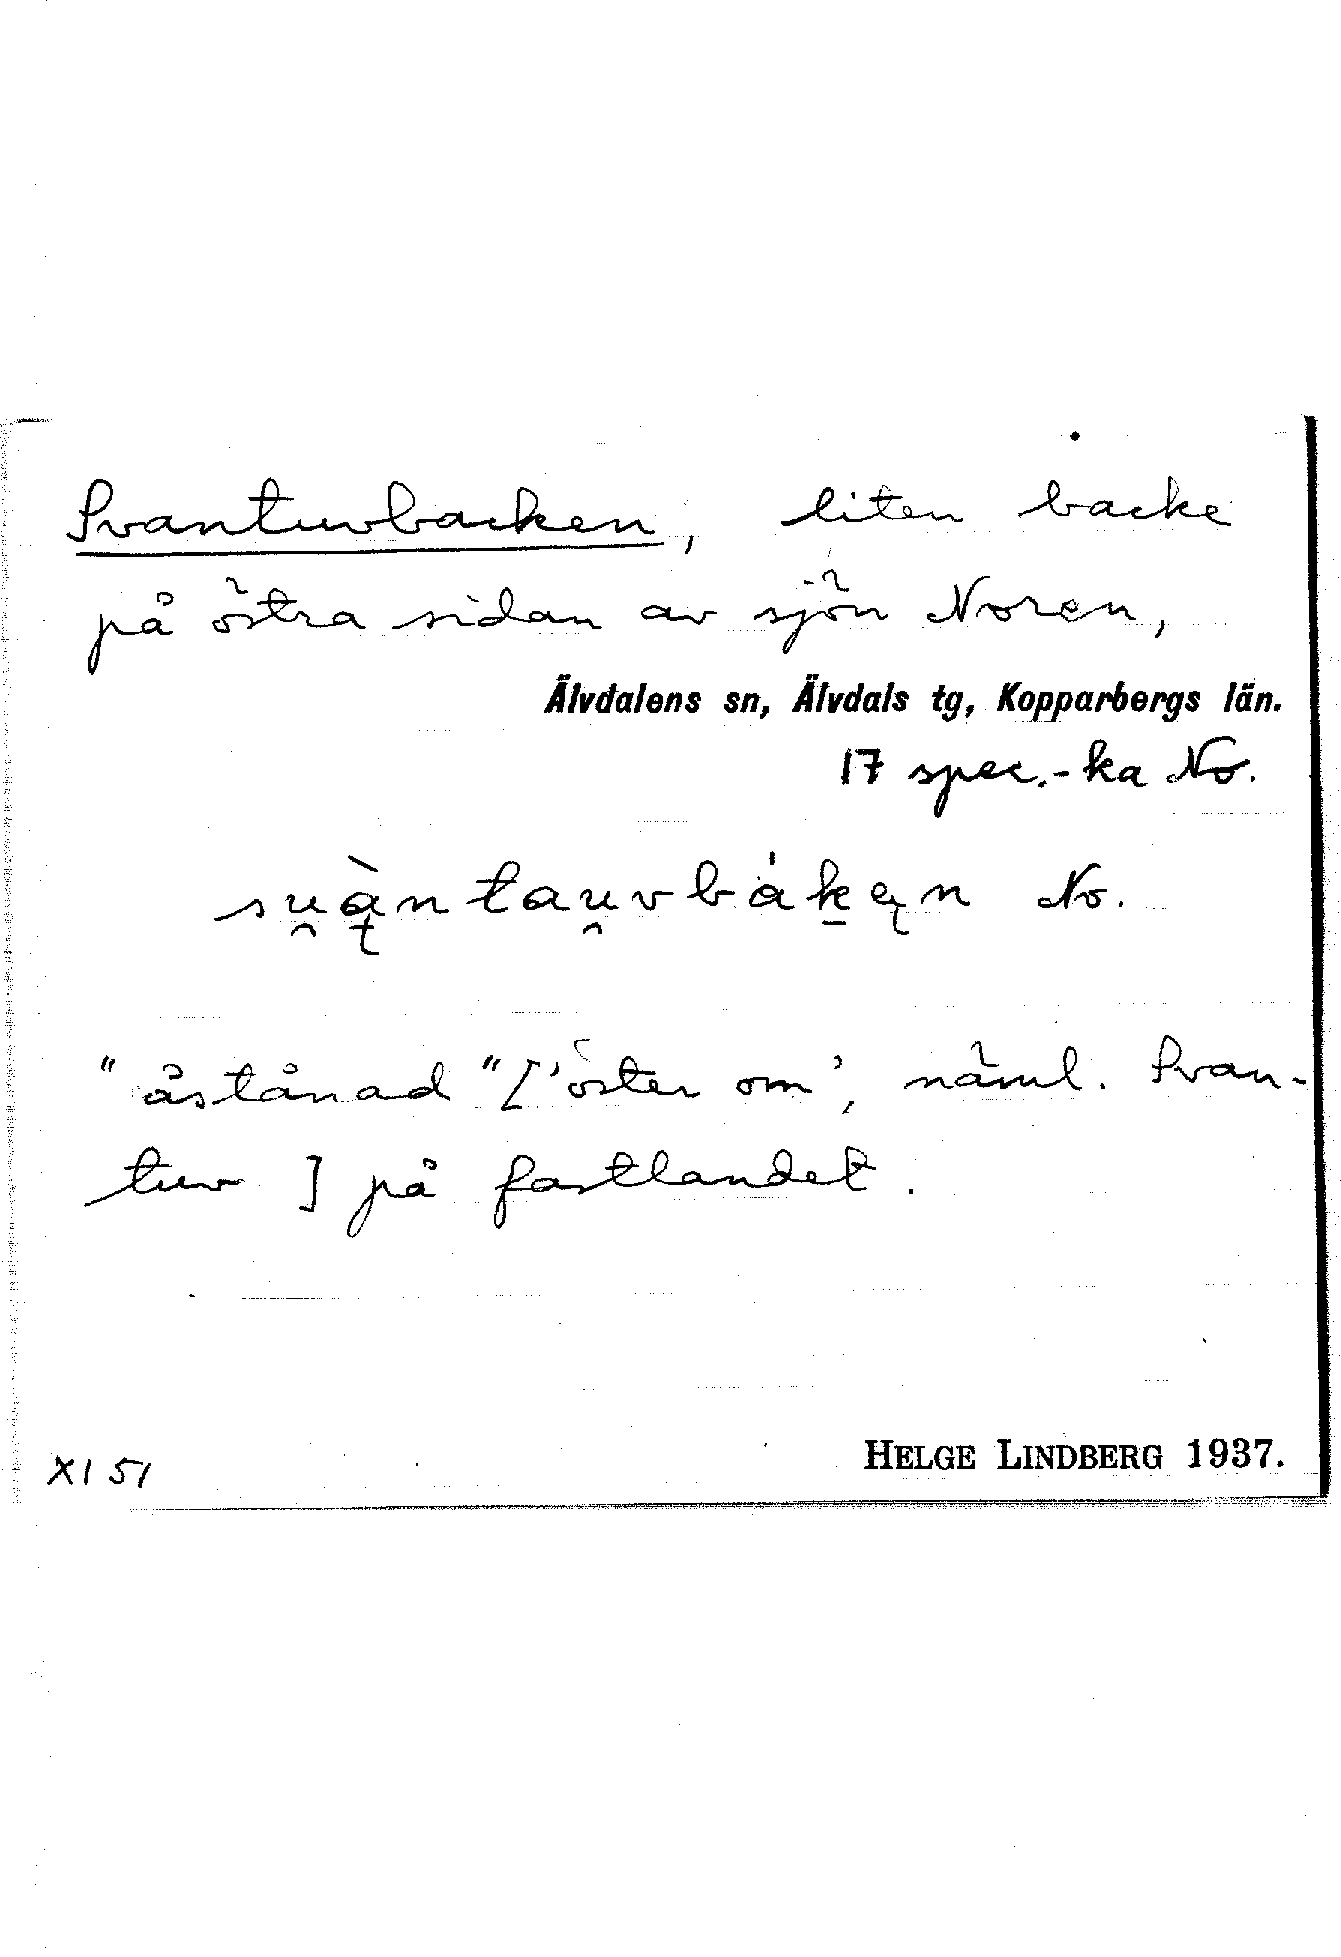 Svantuvbacken, liten backe
på östra sidan av sjön Noren,
Älvdalens sn, Älvdals tg, Kopparbergs län.
17 spec.-ka No.
su̯ą̀ntau̯vbàk̠ęn No.
"åstånad" ['öster om', näml. Svan-
tuv] på fastlandet.
XI 51
HELGE LINDBERG 1937.